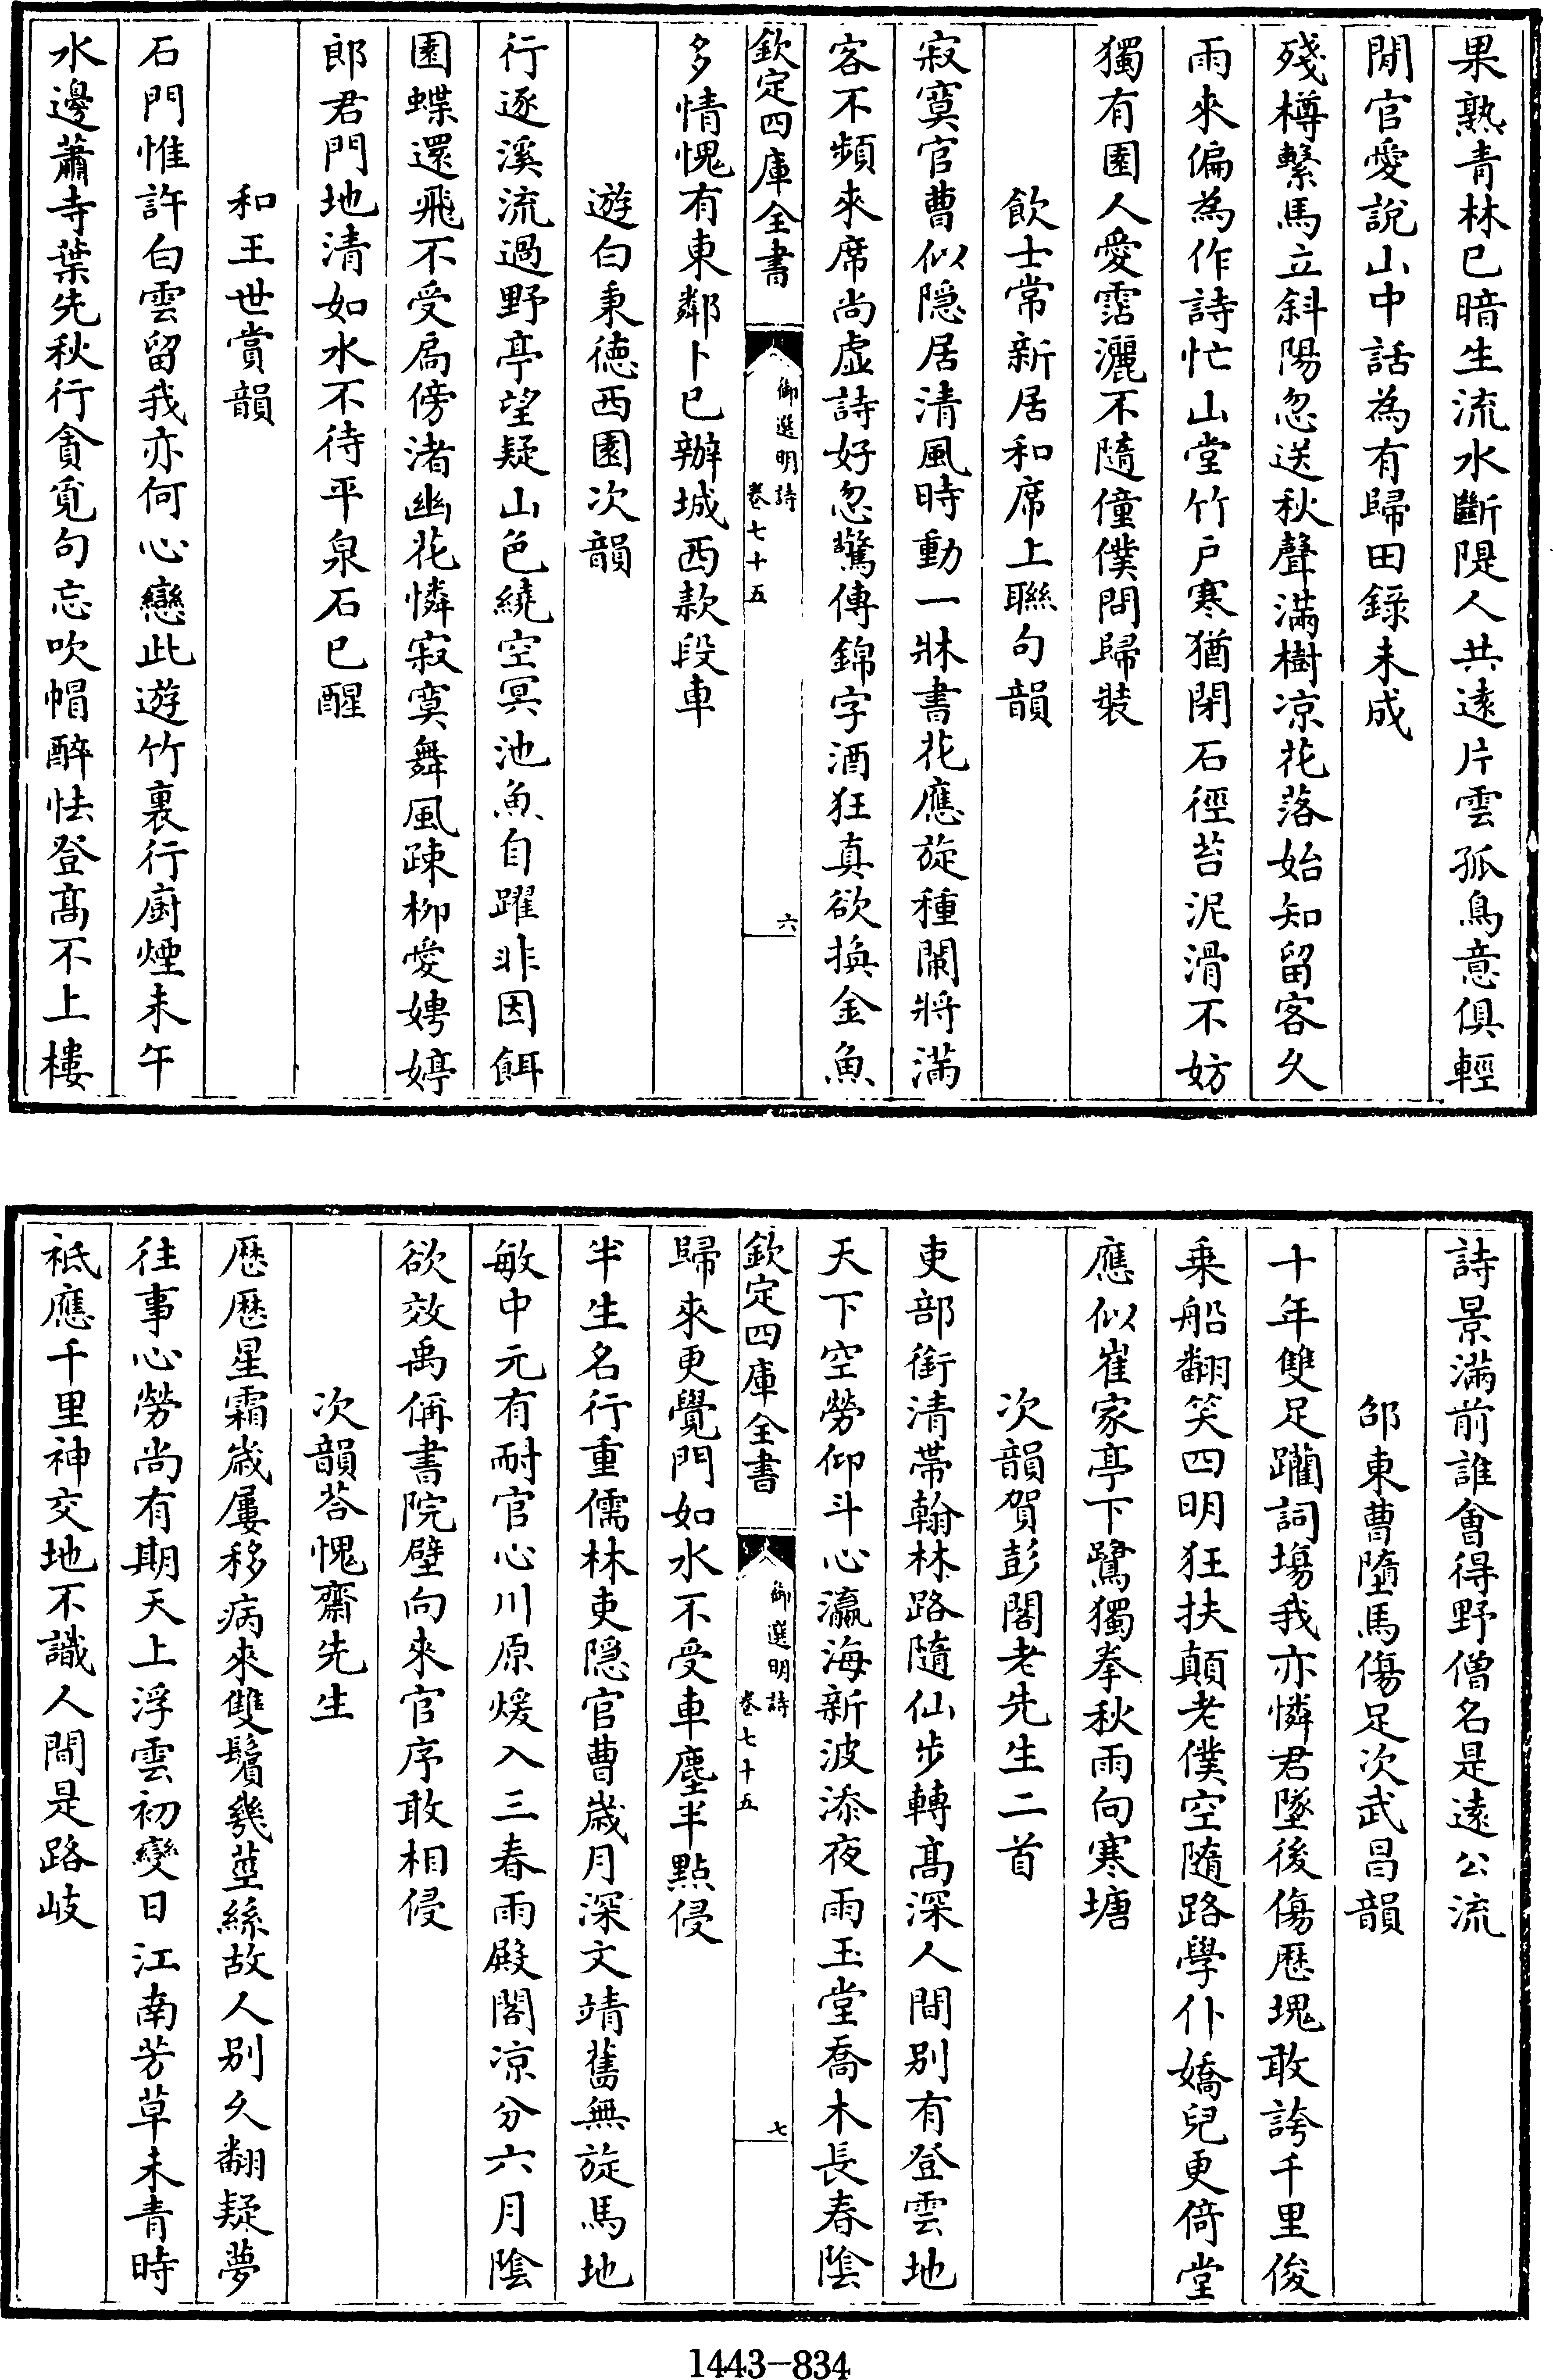 果熟青林已暗生流水斷隄人共遠片雲孤鳥意俱輕
閒官愛說山中話為有歸田錄未成
殘樽繫馬立斜陽忽送秋聲滿樹凉花落始知留客久
雨來偏為作詩忙山堂竹户寒猶閉石徑苔泥滑不妨
獨有園人愛霑灑不隨僮僕問歸裝
飲士常新居和席上聯句韻
寂寞官曹似隱居清風時動一牀書花應旋種闌將滿
客不頻來席尚虛詩好忽驚傳錦字酒狂真欲換金魚
欽定四庫全書
御選明詩
卷七十五
六
多情愧有東鄰卜已辦城西款段車
遊白秉德西園次韻
行逐溪流過野亭望疑山色繞空冥池魚自躍非因餌
園蝶還飛不受扃傍渚幽花憐寂寞舞風疎柳愛娉婷
郎君門地清如水不待平泉石已醒
和王世賞韻
石門惟許白雲留我亦何心戀此遊竹裏行廚煙未午
水邊蕭寺葉先秋行貪覓句忘吹帽醉怯登髙不上樓
詩景滿前誰會得野僧名是遠公流
邵東曹墮馬傷足次武昌韻
十年雙足躪詞場我亦憐君墜後傷歷塊敢誇千里俊
乗船翻笑四明狂扶顛老僕空隨路學仆嬌兒更倚堂
應似崔家亭下鷺獨拳秋雨向寒塘
次韻賀彭閣老先生二首
吏部銜清帶翰林路隨仙步轉髙深人間别有登雲地
天下空勞仰斗心瀛海新波添夜雨玉堂喬木長春陰
欽定四庫全書
御選明詩
卷七十五
七
歸來更覺門如水不受車塵半點侵
半生名行重儒林吏隱官曹歲月深文靖舊無旋馬地
敏中元有耐官心川原煖入三春雨殿閣凉分六月陰
欲效禹偁書院壁向來官序敢相侵
次韻荅愧齋先生
歷歷星霜歲屢移病來雙鬢幾莖絲故人别久翻疑夢
往事心勞尚有期天上浮雲初變日江南芳草未青時
祗應千里神交地不識人間是路岐
1443-834